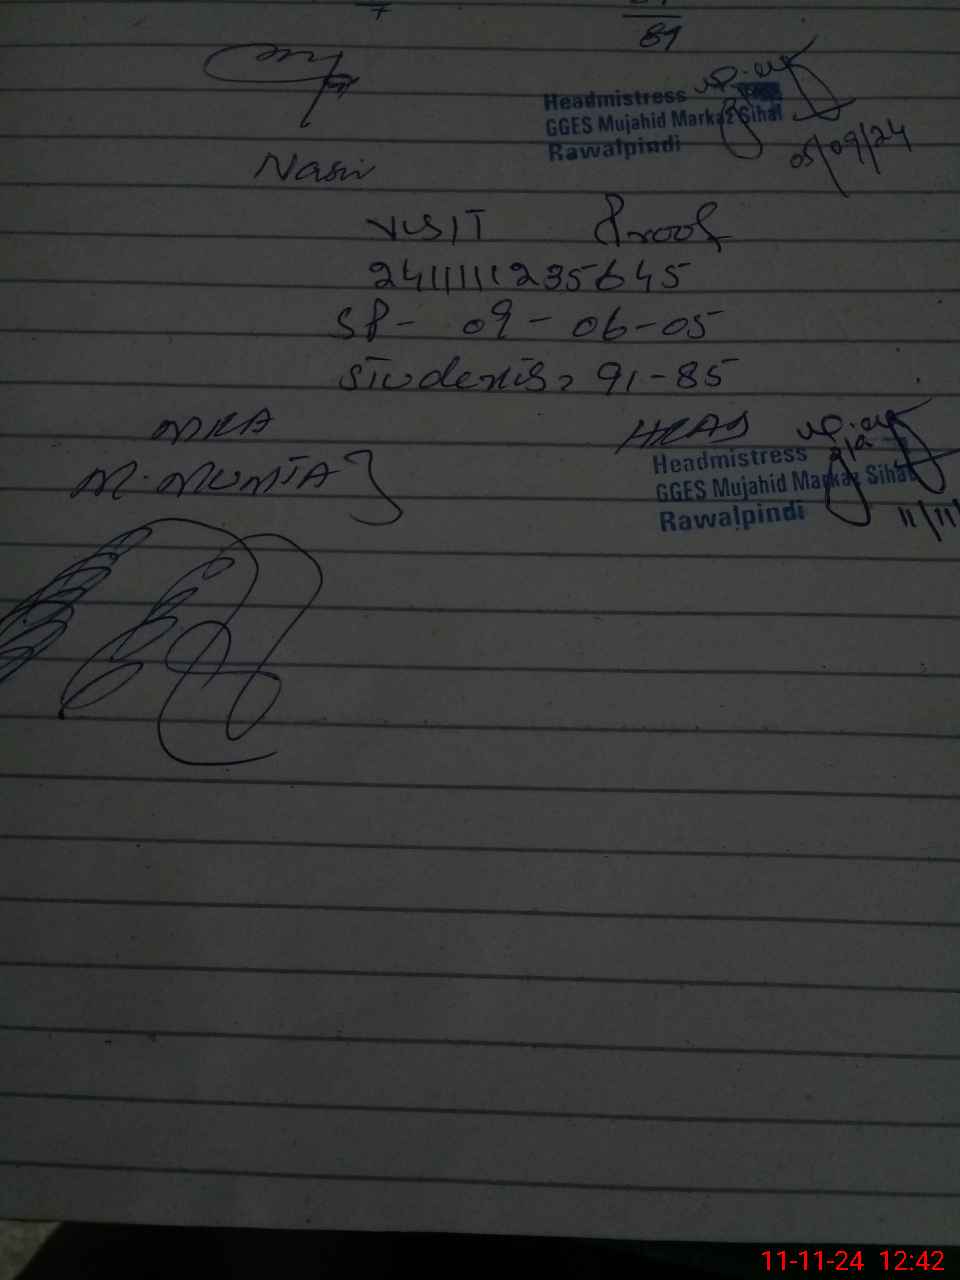 7
81
Headmistress
GGES Mujahid Markaz Sihal
Rawalpindi
05/09/24
Nasir
VISIT Proof
241111123 5645
SP- 09-06-05
Students = 91-85
MEA
HEAD
M. MUMTAZ
Headmistress
GGES Mujahid Markaz Sihal
Rawalpindi
11/11/
11-11-24 12:42